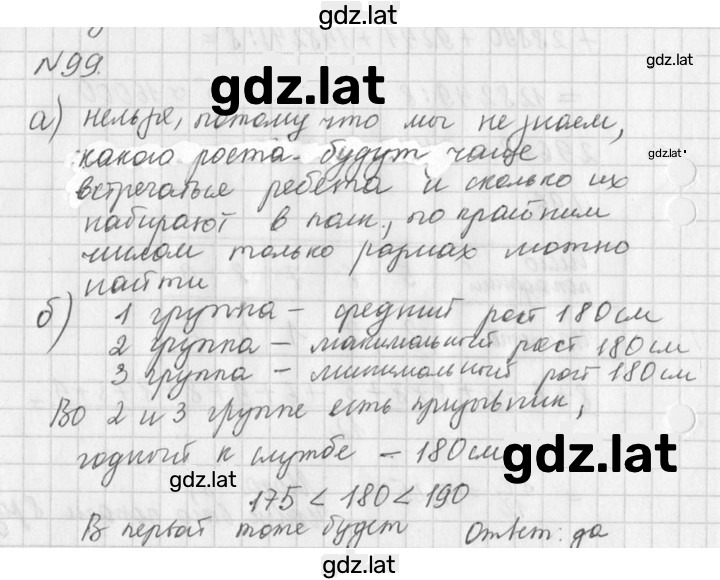 gdz.lat
N99.
gdz.lat
gdz.lat
а) нельзя, потому что мы не знаем,
какого роста будут чаще
gdz.lat
встречаться ребята и сколько их
набирают в полк, по крайним
числам только размах можно
найти
б) 1 группа – средний рост 180 см
2 группа – максимальный рост 180 см
3 группа – минимальный рост 180 см
Во 2 и 3 группе есть призывник,
годный к службе – 180 см
gdz.lat
gdz.lat
175 < 180 < 190
В первой тоже будет Ответ: да
gdz.lat